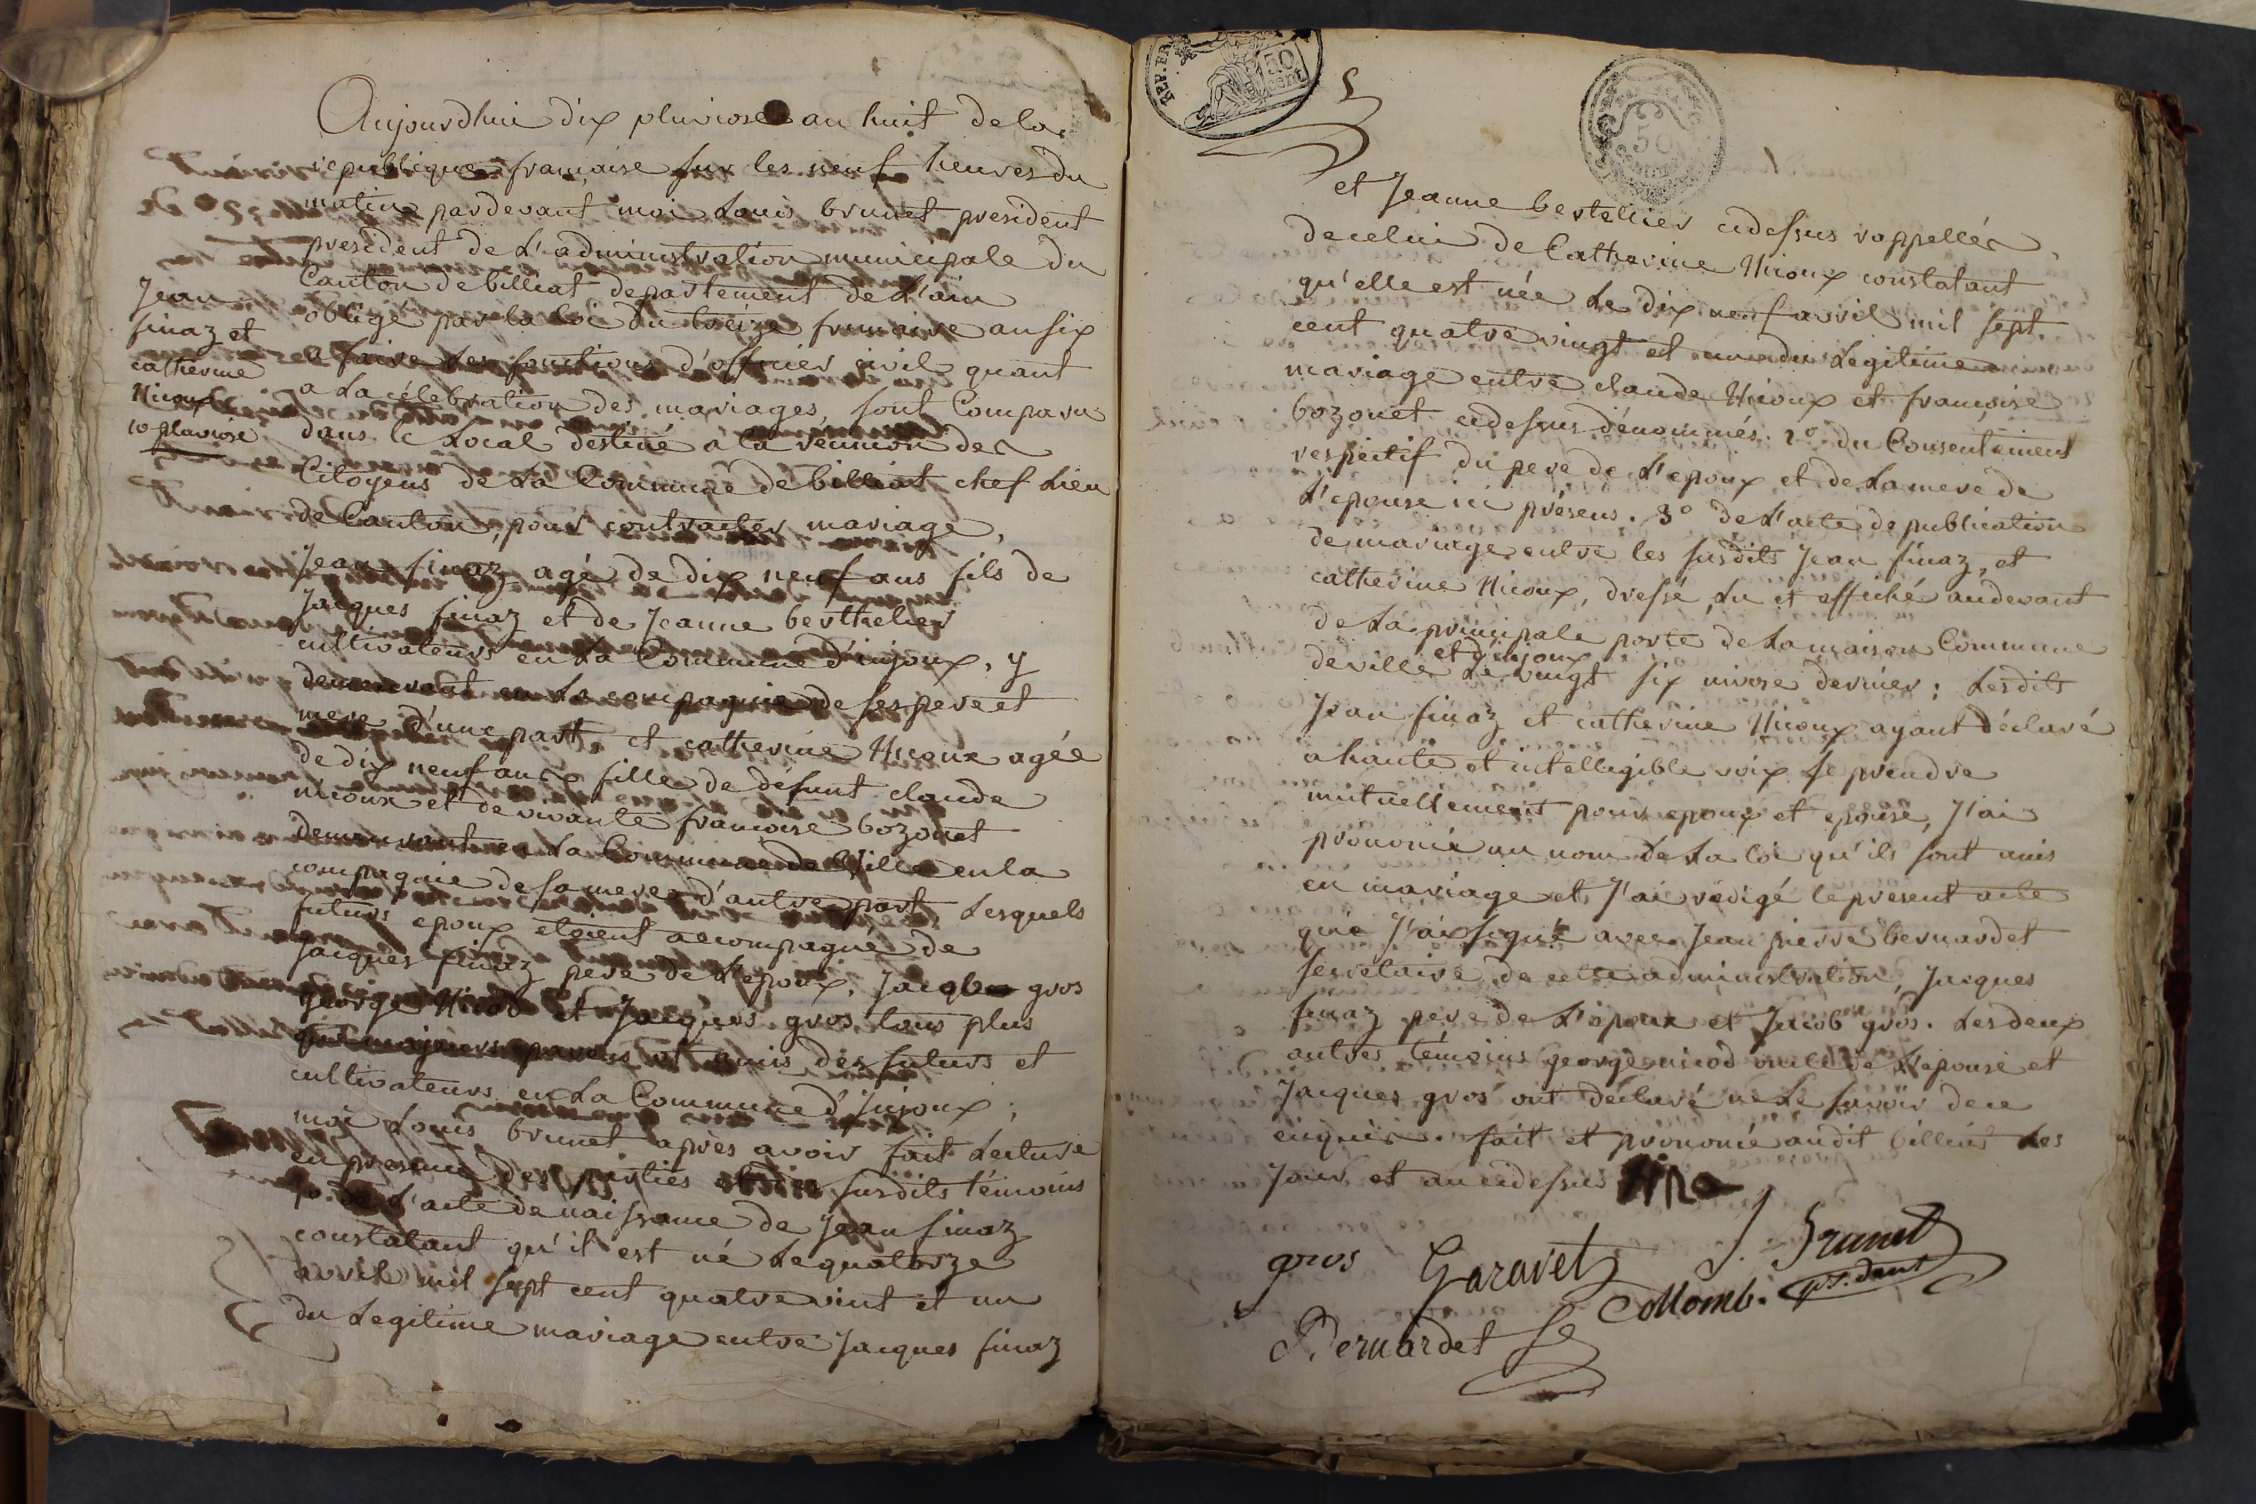 Aujourdhui dix pluviose an huit de la
republique française sur les neuf heures du
matin pardevant moi Louis brunet president
president de l'administration municipale du
Canton de billiat departement de L'ain
obligé par la loi du treize frimaire an six
a faire les fonctions d'officier civil quant
a La célébration des mariages, sont Comparu
dans le Local destiné a la réunion des
Citoyens de La Commune de billiat chef Lieu
de Canton, pour contracter mariage,
Jean finaz agé de dix neuf ans fils de
Jacques finaz et de Jeanne berthelier
cultivateurs en La Commune d'injoux, y
demeurant en La compagnie de ses pere et
mere d'une part et catherine Nicoux agée
de dix neuf ans fille de défunt claude
nicoux et de vivante francoise bozonet
demeurante en La Commune de Ville en la
compagnie de sa mere d'autre part, Lesquels
futurs epoux etoient accompagné de
Jacques finaz pere de L'epoux, Jacob gros
george Nicod et Jacques gros tous plus
que majeurs parens et amis des futurs et
cultivateurs en La Commune d'Injoux;
moi Louis brunet apres avoir fait Lecture
en presence des parties et des susdits témoins
1º de L'acte de naissance de Jean finaz
constatant qu'il est né Le quatorze
avril mil sept cent quatre vint et un
du Legitime mariage entre Jacques finaz
Jean
finaz et
catherine
Nicoux
10 pluviose
REP. FRA
50
cent
50
et Jeanne bertellier cidessus rappellés,
de celui de Catherine Nicoux constatant
qu'elle est née Le dix neuf avril mil sept
cent quatre vingt et un du Legitime
mariage entre claude Nicoux et francoise
bozonet cidessus dénommés. 2º du Consentement
respectif du pere de L'epoux et de La mere de
L'epouse ici présens. 3º de L'acte de publication
de mariage entre les susdits Jean finaz, et
catherine Nicoux, dressé, Lu et affiché audevant
de La principale porte de La maison Commune
et d'injoux
de ville Le vingt six nivose dernier; Lesdits
Jean finaz et catherine Nicoux ayant déclaré
a haute et intelligible voix se prendre
mutuellement pour epoux et epouse, J'ai
prononcé au nom de La loi qu'ils sont unis
en mariage et J'ai rédigé le present acte
que J'ai signé avec Jean pierre bernardet
secretaire de cette administration, Jacques
finaz pere de L'epoux et Jacob gros. Les deux
autres témoins george nicod oncle de L'epouse et
Jacques gros ont déclaré ne Le savoir de ce
enquis. fait et prononcé audit billiat Les
Jour et an cidessus
gros Garavet J. Brunet
Collomb. psident
Bernardet Se